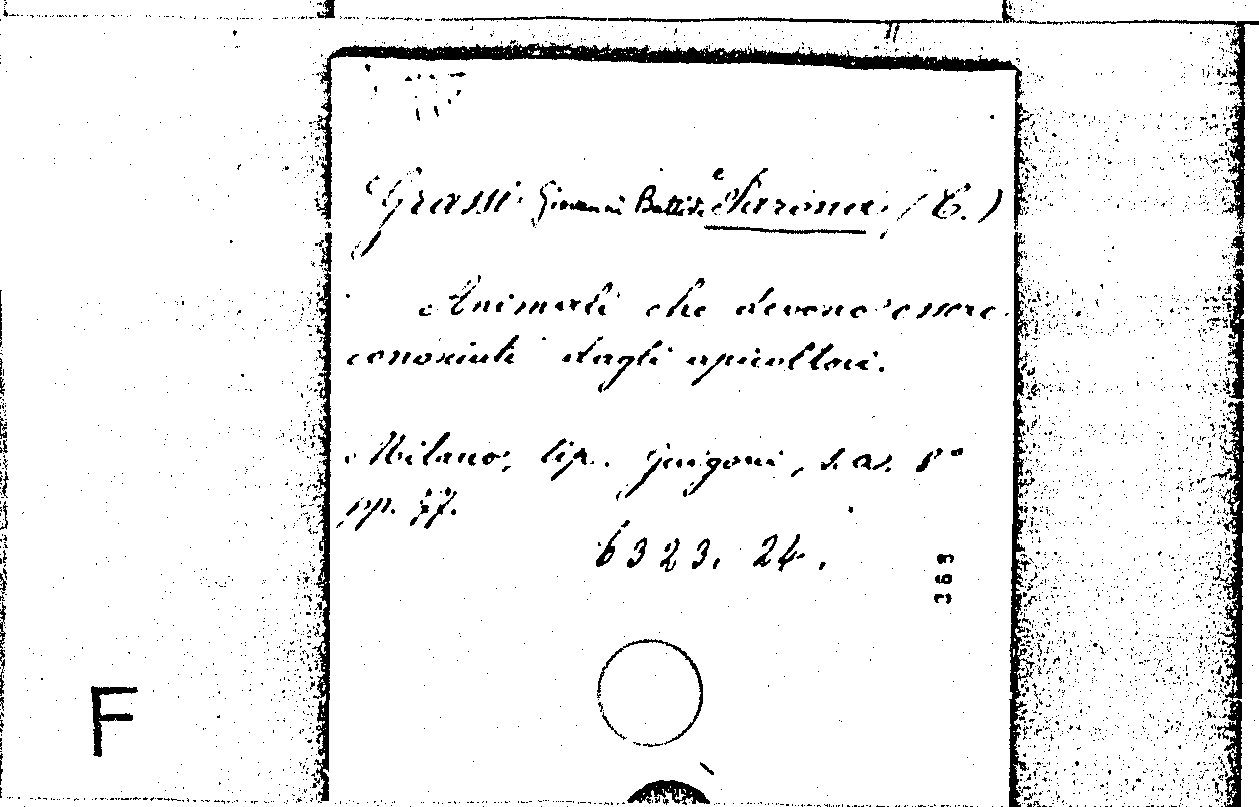 Grassi Giovanni Battista e Sarona (C.)
Animali che devono essere
conosciuti dagli apicoltori.
Milano, tip. Guigoni, s. a. 8°
pp. 77.
6323. 24.
369
F